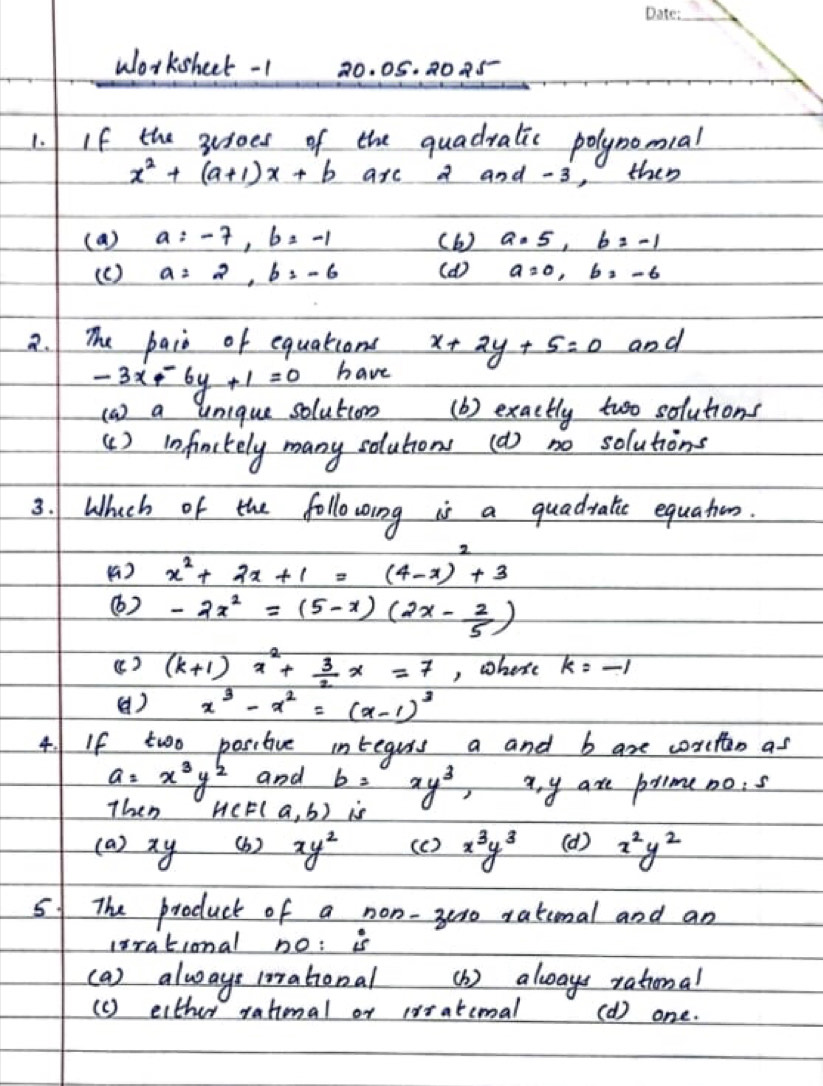 Date:
Worksheet -1 20.05.2025
1. If the zeroes of the quadratic polynomial
x² + (a+1)x + b are 2 and -3, then
(a) a = -7, b = -1 (b) a = 5, b = -1
(c) a = 2, b = -6 (d) a = 0, b = -6
2. The pair of equations x + 2y + 5 = 0 and
-3x - 6y + 1 = 0 have
(a) a unique solution (b) exactly two solutions
(c) infinitely many solutions (d) no solutions
3. Which of the following is a quadratic equation.
(a) x² + 2x + 1 = (4-x)² + 3
(b) - 2x² = (5-x) (2x - 2/5)
(c) (k+1) x² + 3/2 x = 7, where k = -1
(d) x³ - x² = (x-1)³
4. If two positive integers a and b are written as
a = x³y² and b = xy³, x,y are prime no:s
Then HCF(a,b) is
(a) xy (b) xy² (c) x³y³ (d) x²y²
5. The product of a non-zero rational and an
irrational no: is
(a) always irrational (b) always rational
(c) either rational or irrational (d) one.